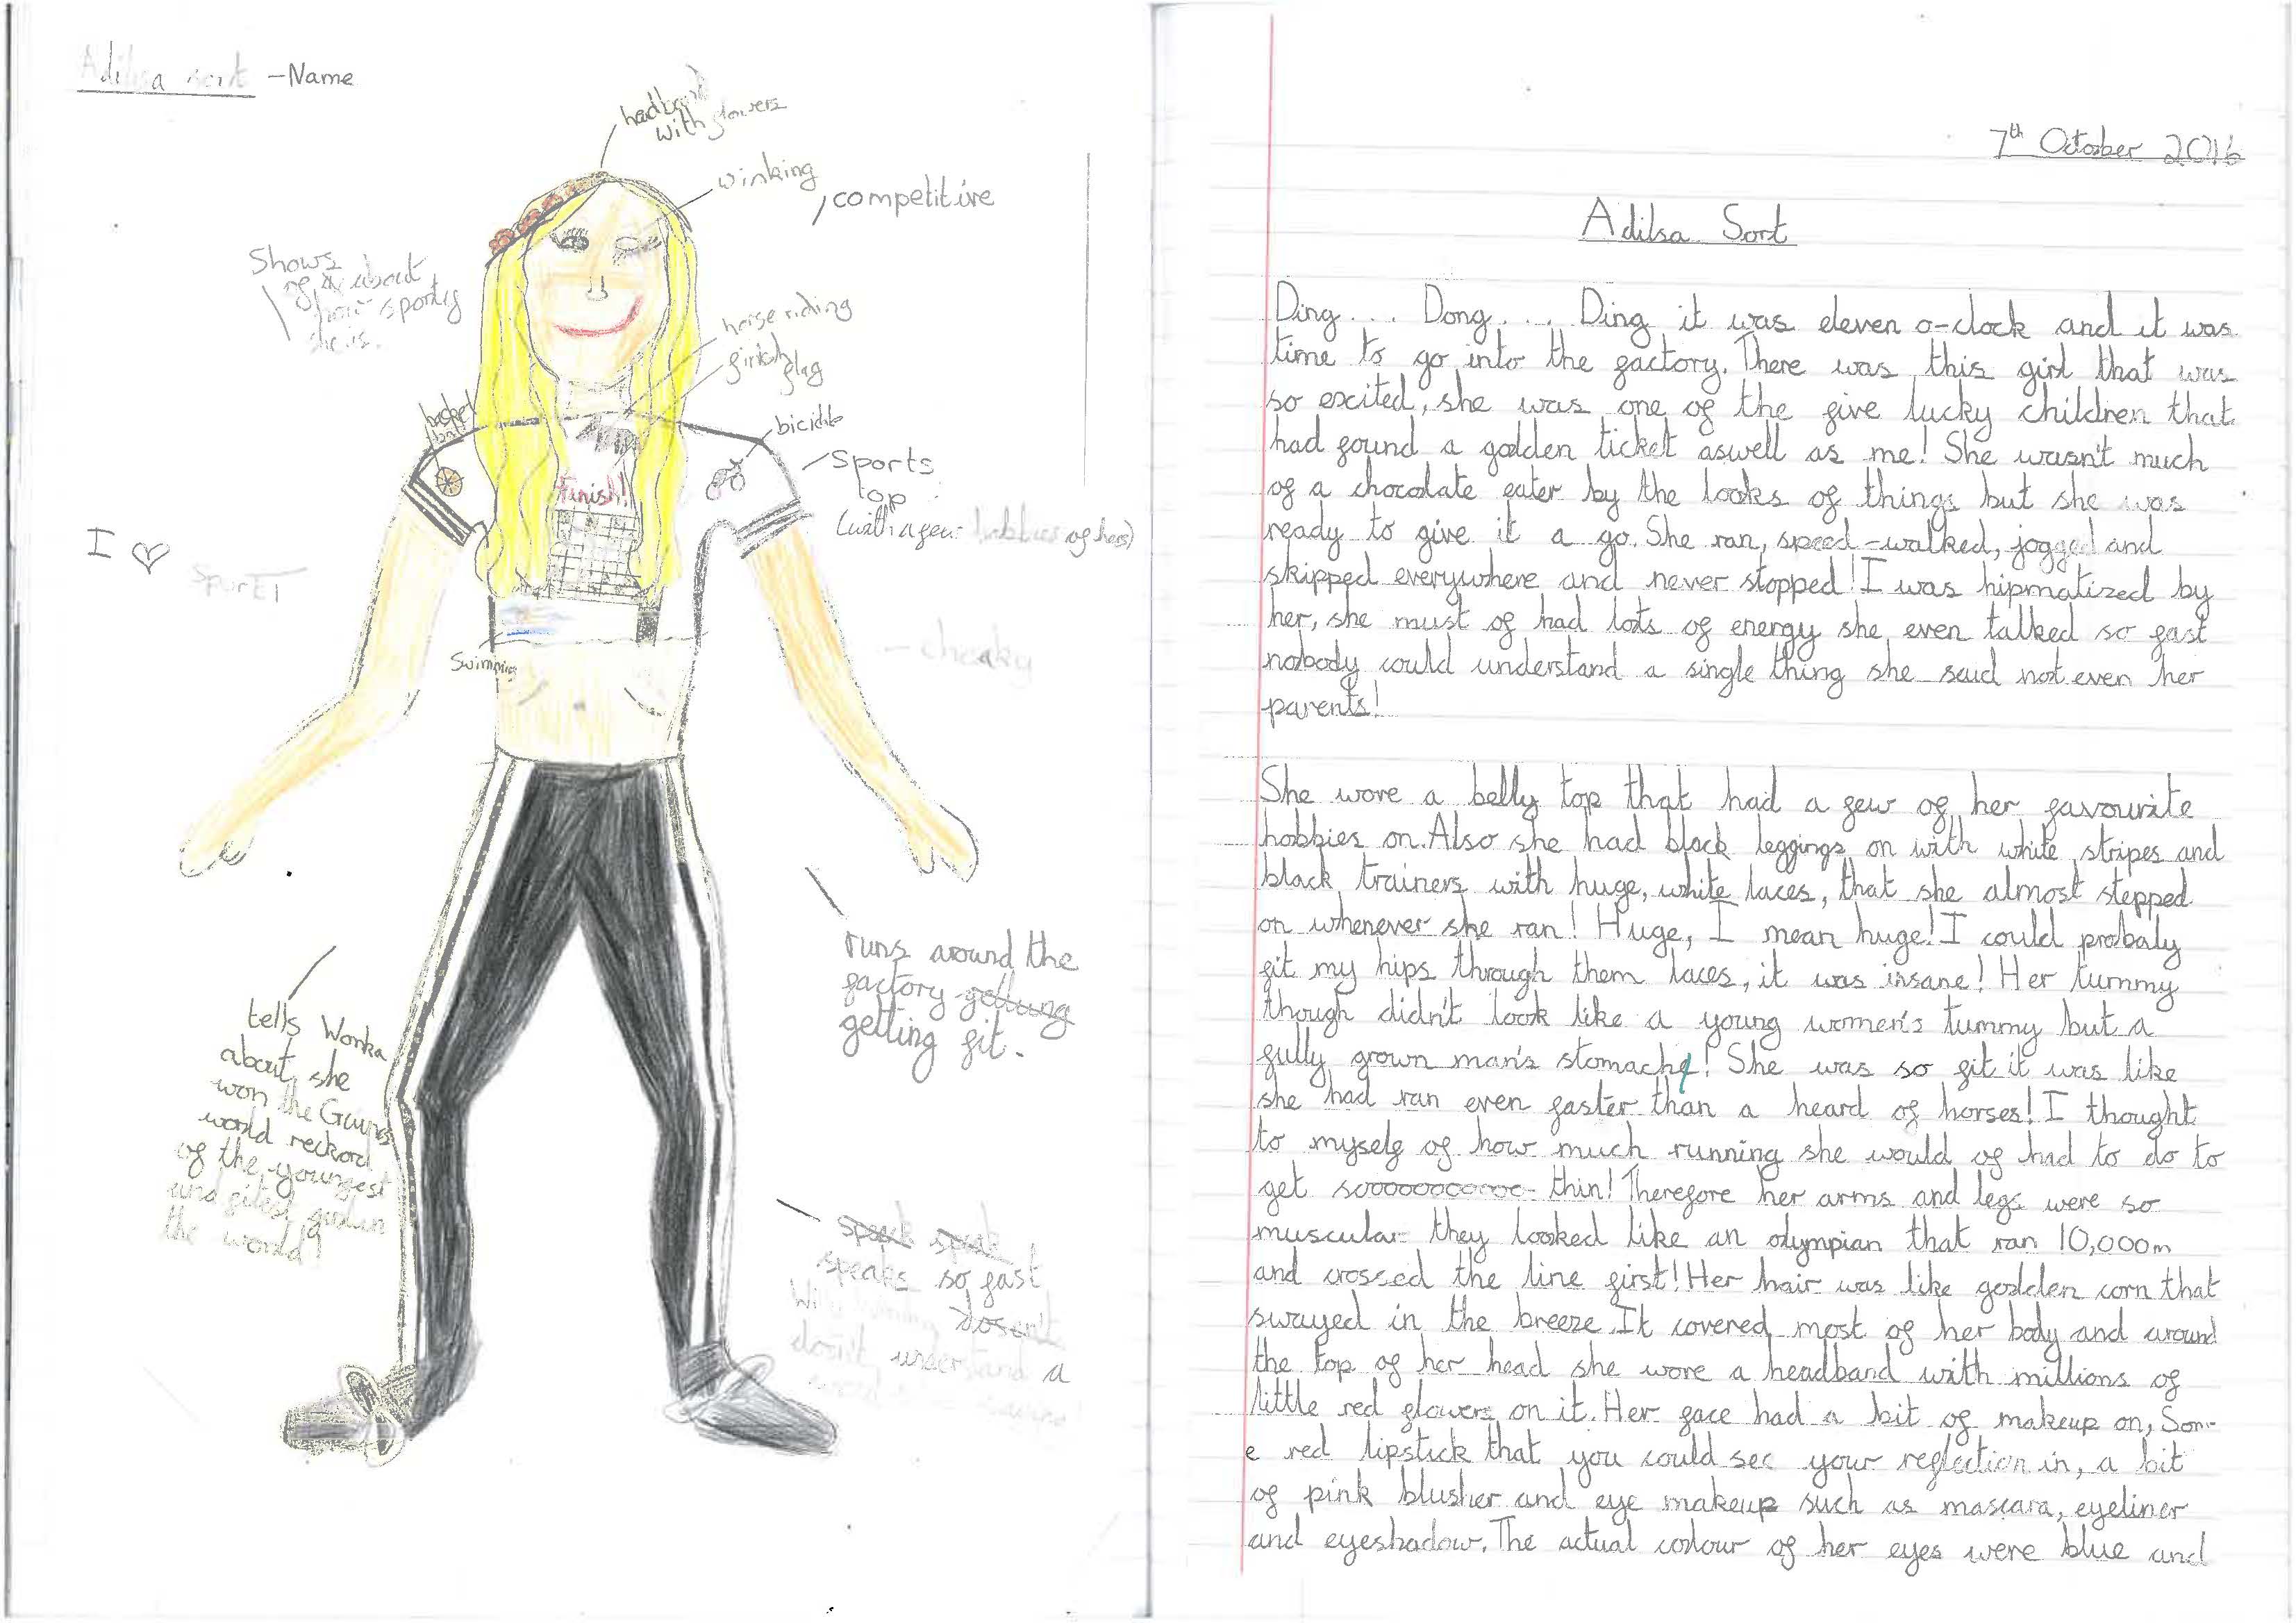 Adilsa sort - Name
headband
with flowers
winking
competitive
Shows
off about
how sporty
she is.
horse riding
finish
flag
basket
ball
bicicle
Sports
top
(with a few hobbies of hers)
Finish!
I ♡
sport!
Swimming
- cheeky
runs around the
factory gettung
getting fit.
tells Wonka
about she
won the Guiness
world reckord
of the youngest
and fitest girl in
the world!
speack speak
speaks so fast
Willy Wonka dosen't
don't understand a
word
7th October 2016
Adilsa Sort
Ding... Dong.... Ding it was eleven o-clock and it was
time to go into the factory. There was this girl that was
so excited, she was one of the five lucky children that
had found a golden ticket aswell as me! She wasn't much
of a chocolate eater by the looks of things but she was
ready to give it a go. She ran, speed-walked, jogged and
skipped everywhere and never stopped! I was hipmatized by
her, she must of had lots of energy she even talked so fast
nobody could understand a single thing she said not even her
parents!
She wore a belly top that had a few of her favourite
hobbies on. Also she had black leggings on with white stripes and
black trainers with huge, white laces, that she almost stepped
on whenever she ran! Huge, I mean huge! I could probaly
fit my hips through them laces, it was insane! Her tummy
though didn't look like a young women's tummy but a
fully grown man's stomache! She was so fit it was like
she had ran even faster than a heard of horses! I thought
to myself of how much running she would of had to do to
get sooooooooooo thin! Therefore her arms and legs were so
muscular they looked like an olympian that ran 10,000m
and crossed the line first! Her hair was like golden corn that
swayed in the breeze. It covered most of her body and around
the top of her head she wore a headband with millions of
little red flowers on it. Her face had a bit of makeup on, Som-
e red lipstick that you could see your reflection in, a bit
of pink blusher and eye makeup such as mascara, eyeliner
and eyeshadow. The actual colour of her eyes were blue and